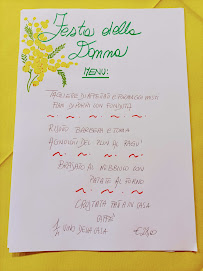 Festa della
Donna
MENU:
TAGLIERE DI AFFETTATI E FORMAGGI MISTI
CON FONDUTA
RISOTTO BARBERA E TOMA
AGNOLOTTI DEL PLIN AL RAGU'
BRASATO AL NEBBIOLO CON
PATATE AL FORNO
CROSTATA FATTA IN CASA
CAFFE'
VINO DELLA CASA